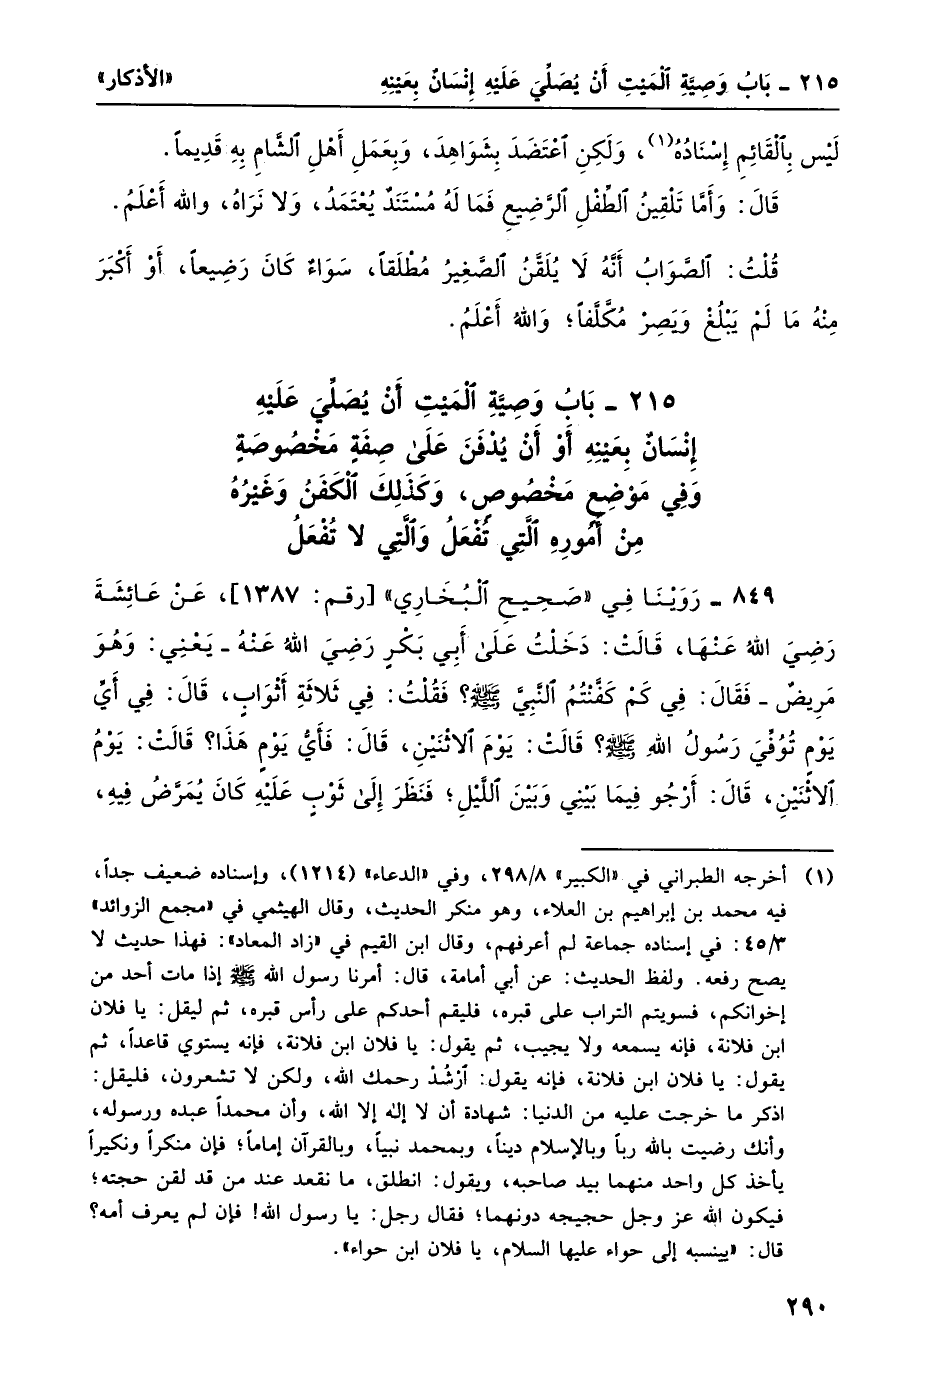 ٢١٥ ـ بَابُ وَصِيَّةِ ٱلْمَيْتِ أَنْ يُصَلِّيَ عَلَيْهِ إِنْسَانٌ بِعَيْنِهِ «الأذكار»
لَيْس بِٱلْقَائِمِ إِسْنَادُهُ(١)، وَلَكِنِ ٱعْتَضَدَ بِشَوَاهِدَ، وَبِعَمَلِ أَهْلِ ٱلشَّامِ بِهِ قَدِيماً.
قَالَ: وَأَمَّا تَلْقِينُ ٱلطِّفْلِ ٱلرَّضِيعِ فَمَا لَهُ مُسْتَنَدٌ يُعْتَمَدُ، وَلا نَرَاهُ، والله أَعْلَمُ.
قُلْتُ: ٱلصَّوَابُ أَنَّهُ لَا يُلَقَّنُ ٱلصَّغِيرُ مُطْلَقاً، سَوَاءٌ كَانَ رَضِيعاً، أَوْ أَكْبَرَ
مِنْهُ مَا لَمْ يَبْلُغْ وَيَصِرْ مُكَلَّفاً؛ وَاللهُ أَعْلَمُ.
٢١٥ ـ بَابُ وَصِيَّةِ ٱلْمَيْتِ أَنْ يُصَلِّيَ عَلَيْهِ
إِنْسَانٌ بِعَيْنِهِ أَوْ أَنْ يُدْفَنَ عَلَىٰ صِفَةٍ مَخْصُوصَةٍ
وَفِي مَوْضِعٍ مَخْصُوصٍ، وَكَذَلِكَ ٱلْكَفَنُ وَغَيْرُهُ
مِنْ أُمُورِهِ ٱلَّتِي تُفْعَلُ وَٱلَّتِي لا تُفْعَلُ
٨٤٩ ـ رَوَيْنَا فِي «صَحِيحِ ٱلْبُخَارِي» [رقم: ١٣٨٧]، عَنْ عَائِشَةَ
رَضِيَ اللهُ عَنْهَا، قَالَتْ: دَخَلْتُ عَلَىٰ أَبِي بَكْرٍ رَضِيَ اللهُ عَنْهُ ـ يَعْنِي: وَهُوَ
مَرِيضٌ ـ فَقَالَ: فِي كَمْ كَفَّنْتُمُ ٱلنَّبِيَّ ﷺ؟ فَقُلْتُ: فِي ثَلاثَةِ أَثْوَابٍ، قَالَ: فِي أَيِّ
يَوْمٍ تُوُفِّيَ رَسُولُ اللهِ ﷺ؟ قَالَتْ: يَوْمَ ٱلاثْنَيْنِ، قَالَ: فَأَيُّ يَوْمٍ هَذَا؟ قَالَتْ: يَوْمُ
ٱلاثْنَيْنِ، قَالَ: أَرْجُو فِيمَا بَيْنِي وَبَيْنَ اللَّيْلِ؛ فَنَظَرَ إِلَىٰ ثَوْبٍ عَلَيْهِ كَانَ يُمَرَّضُ فِيهِ،
(١) أخرجه الطبراني في «الكبير» ٢٩٨/٨، وفي «الدعاء» (١٢١٤)، وإسناده ضعيف جداً،
فيه محمد بن إبراهيم بن العلاء، وهو منكر الحديث، وقال الهيثمي في «مجمع الزوائد»
٤٥/٣: في إسناده جماعة لم أعرفهم، وقال ابن القيم في «زاد المعاد»: فهذا حديث لا
يصح رفعه. ولفظ الحديث: عن أبي أمامة، قال: أمرنا رسول الله ﷺ إذا مات أحد من
إخوانكم، فسويتم التراب على قبره، فليقم أحدكم على رأس قبره، ثم ليقل: يا فلان
ابن فلانة، فإنه يسمعه ولا يجيب، ثم يقول: يا فلان ابن فلانة، فإنه يستوي قاعداً، ثم
يقول: يا فلان ابن فلانة، فإنه يقول: أرْشُدْ رحمك الله، ولكن لا تشعرون، فليقل:
اذكر ما خرجت عليه من الدنيا: شهادة أن لا إله إلا الله، وأن محمداً عبده ورسوله،
وأنك رضيت بالله رباً وبالإسلام ديناً، وبمحمد نبياً، وبالقرآن إماماً؛ فإن منكراً ونكيراً
يأخذ كل واحد منهما بيد صاحبه، ويقول: انطلق، ما نقعد عند من قد لقن حجته؛
فيكون الله عز وجل حجيجه دونهما؛ فقال رجل: يا رسول الله! فإن لم يعرف أمه؟
قال: «ينسبه إلى حواء عليها السلام، يا فلان ابن حواء».
٢٩٠